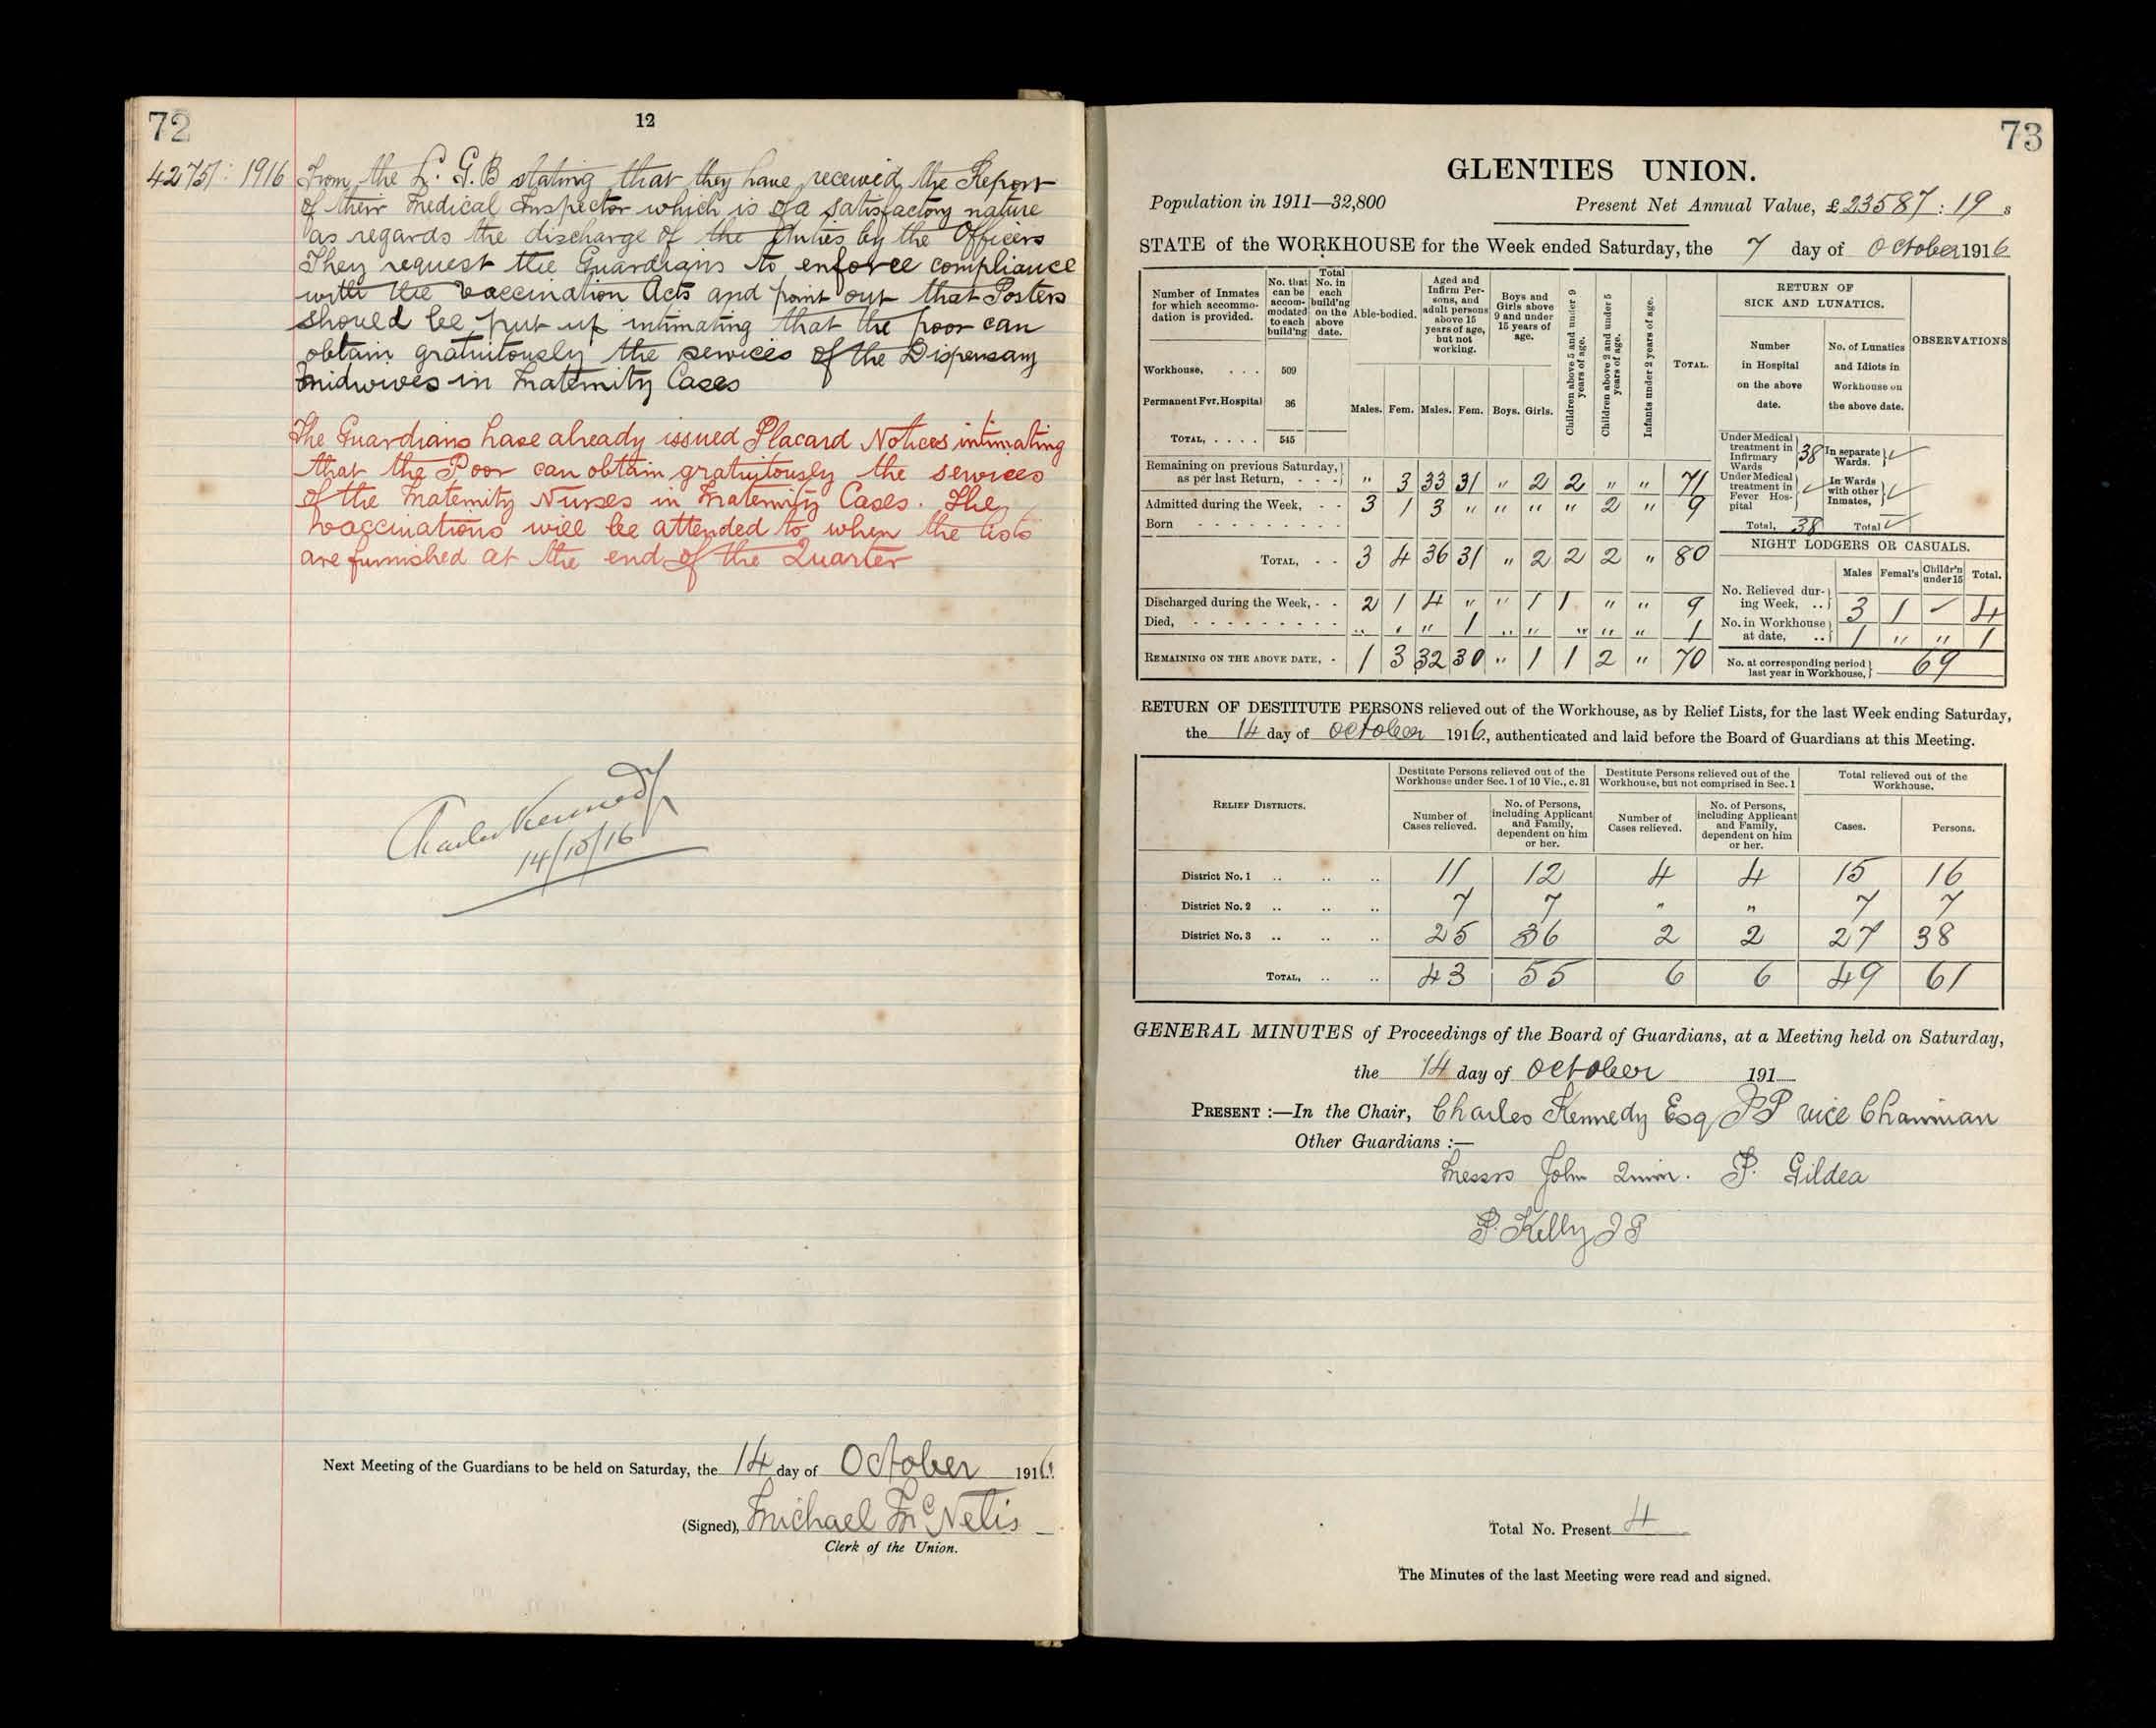 72
12
42751 : 1916 From the L. G. B stating that they have received the Report
of their Medical Inspector which is of a satisfactory nature
as regards the discharge of the Duties by the Officers
They request the Guardians to enforce compliance
with the Vaccination Acts and point out that Posters
should be put up intimating that the poor can
obtain gratuitously the services of the Dispensary
Midwives in Maternity Cases
The Guardians have already issued Placard Notices intimating
that the Poor can obtain gratuitously the services
of the Maternity Nurses in Maternity Cases. The
Vaccinations will be attended to when the lists
are furnished at the end of the Quarter
Charles Kennedy
14/10/16
Next Meeting of the Guardians to be held on Saturday, the 14 day of October 1916
(Signed), Michael McNelis
Clerk of the Union.
73
GLENTIES UNION.
Population in 1911—32,800 Present Net Annual Value, £23587 : 19 s
STATE of the WORKHOUSE for the Week ended Saturday, the 7 day of October 1916
Number of Inmates for which accommodation is provided. No. that can be accommodated to each build'ng Total No. in each build'ng on the above date. Able-bodied. Aged and Infirm Persons, and adult persons above 15 years of age, but not working. Boys and Girls above 9 and under 15 years of age. Children above 5 and under 9 years of age. Children above 2 and under 5 years of age. Infants under 2 years of age. TOTAL. RETURN OF SICK AND LUNATICS. OBSERVATIONS
Number in Hospital on the above date. No. of Lunatics and Idiots in Workhouse on the above date.
Workhouse, . . . 509
Permanent Fvr. Hospital 36
Males. Fem. Males. Fem. Boys. Girls.
TOTAL, . . . . 545
Remaining on previous Saturday, as per last Return, - - - " 3 33 31 " 2 2 " " 71
Admitted during the Week, - - 3 1 3 " " " " 2 " 9
Born - - - - - - - - -
TOTAL, - - 3 4 36 31 " 2 2 2 " 80
Discharged during the Week, - - 2 1 4 " " 1 1 " " 9
Died, - - - - - - - - - " " " 1 " " " " " 1
REMAINING ON THE ABOVE DATE, - 1 3 32 30 " 1 1 2 " 70
Under Medical treatment in Infirmary Wards 38 In separate Wards. ✓
Under Medical treatment in Fever Hospital ✓ In Wards with other Inmates, ✓
Total, 38 Total ✓
NIGHT LODGERS OR CASUALS.
Males Femal's Childr'n under 15 Total.
No. Relieved during Week, .. 3 1 ✓ 4
No. in Workhouse at date, .. 1 " " 1
No. at corresponding period last year in Workhouse, 69
RETURN OF DESTITUTE PERSONS relieved out of the Workhouse, as by Relief Lists, for the last Week ending Saturday,
the 14 day of October 1916, authenticated and laid before the Board of Guardians at this Meeting.
RELIEF DISTRICTS. Destitute Persons relieved out of the Workhouse under Sec. 1 of 10 Vic., c. 31 Destitute Persons relieved out of the Workhouse, but not comprised in Sec. 1 Total relieved out of the Workhouse.
Number of Cases relieved. No. of Persons, including Applicant and Family, dependent on him or her. Number of Cases relieved. No. of Persons, including Applicant and Family, dependent on him or her. Cases. Persons.
District No. 1 .. .. .. 11 12 4 4 15 16
District No. 2 .. .. .. 7 7 " " 7 7
District No. 3 .. .. .. 25 36 2 2 27 38
TOTAL, .. .. 43 55 6 6 49 61
GENERAL MINUTES of Proceedings of the Board of Guardians, at a Meeting held on Saturday,
the 14 day of October 191
PRESENT :—In the Chair, Charles Kennedy Esq JP vice Chairman
Other Guardians :—
Messrs John Quinn. P. Gildea
P. Kelly JP
Total No. Present 4
The Minutes of the last Meeting were read and signed.